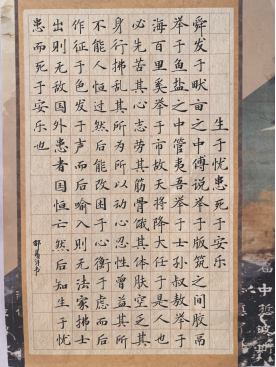 生于忧患死于安乐
舜发于畎亩之中傅说举于版筑之间胶鬲
举于鱼盐之中管夷吾举于士孙叔敖举于
海百里奚举于市故天将降大任于是人也
必先苦其心志劳其筋骨饿其体肤空乏其
身行拂乱其所为所以动心忍性增益其所
不能人恒过然后能改困于心衡于虑而后
作征于色发于声而后喻入则无法家拂士
出则无敌国外患者国恒亡然后知生于忧
患而死于安乐也